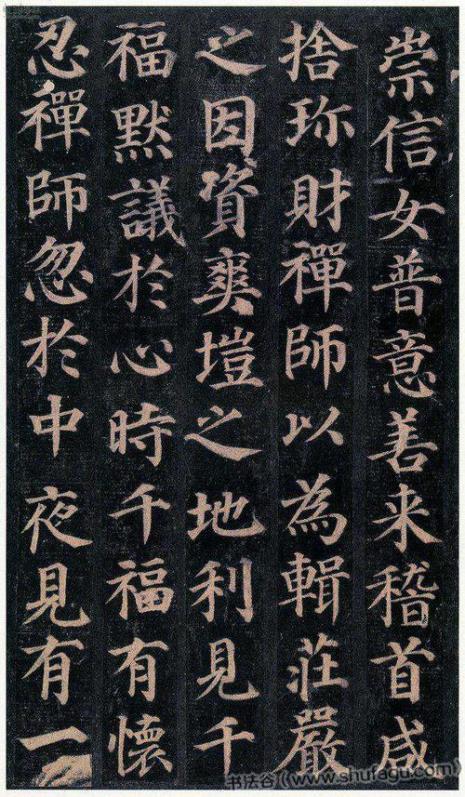 崇信女普意善来稽首咸
捨珎財禪師以為輯莊嚴
之因資爽塏之地利見千
福默議於心時千福有懷
忍禪師忽於中夜見有一
书法谷(www.shufagu.com)